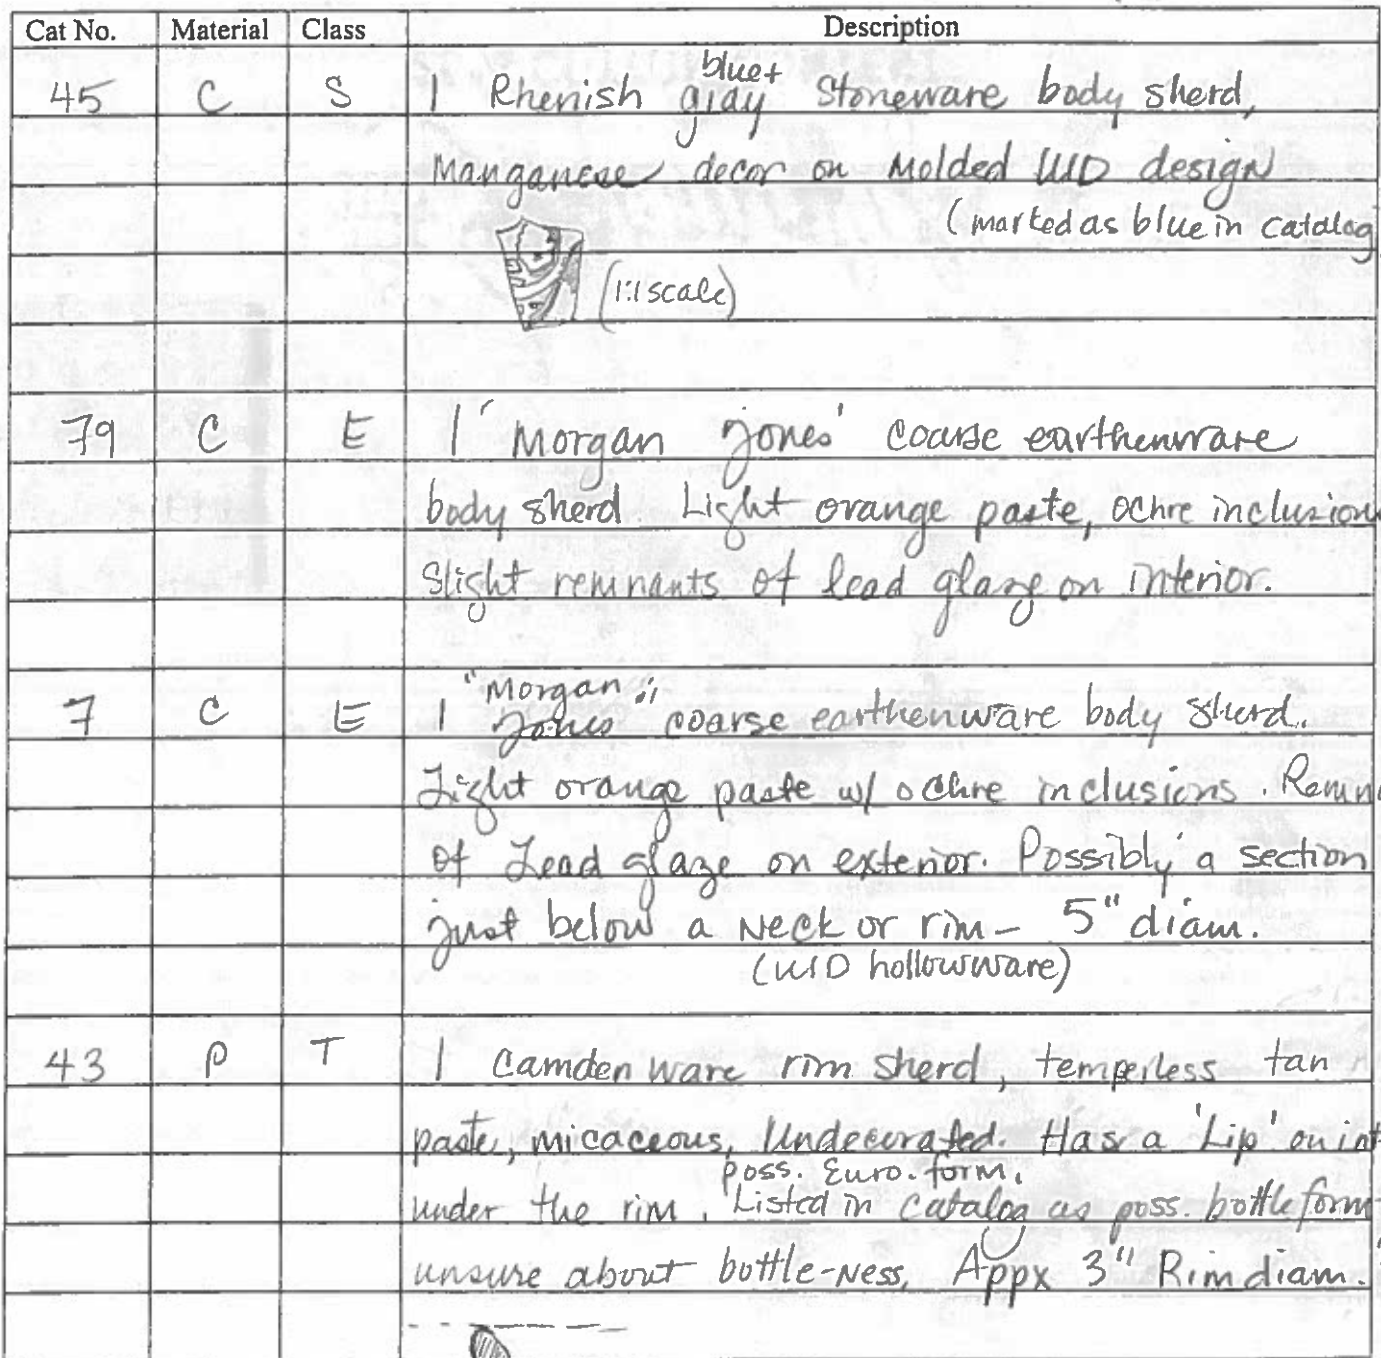 Cat No. Material Class Description
blue+
45 C S 1 Rhenish gray Stoneware body sherd,
Manganese decor on Molded UID design
(marked as blue in catalog
(1:1 scale)
79 C E 1 'Morgan Jones' coarse earthenware
body sherd. Light orange paste, ochre inclusion
Slight remnants of lead glaze on interior.
"Morgan
7 C E 1 Jones" coarse earthenware body sherd.
Light orange paste w/ ochre inclusions. Remn
of Lead glaze on exterior. Possibly a section
just below a neck or rim – 5" diam.
(UID hollowware)
43 P T 1 Camden ware rim sherd, temperless tan
paste, micaceous, Undecorated. Has a 'Lip' on int
poss. Euro. form.
under the rim. Listed in catalog as poss. bottle form
unsure about bottle-ness, Appx 3" Rim diam.